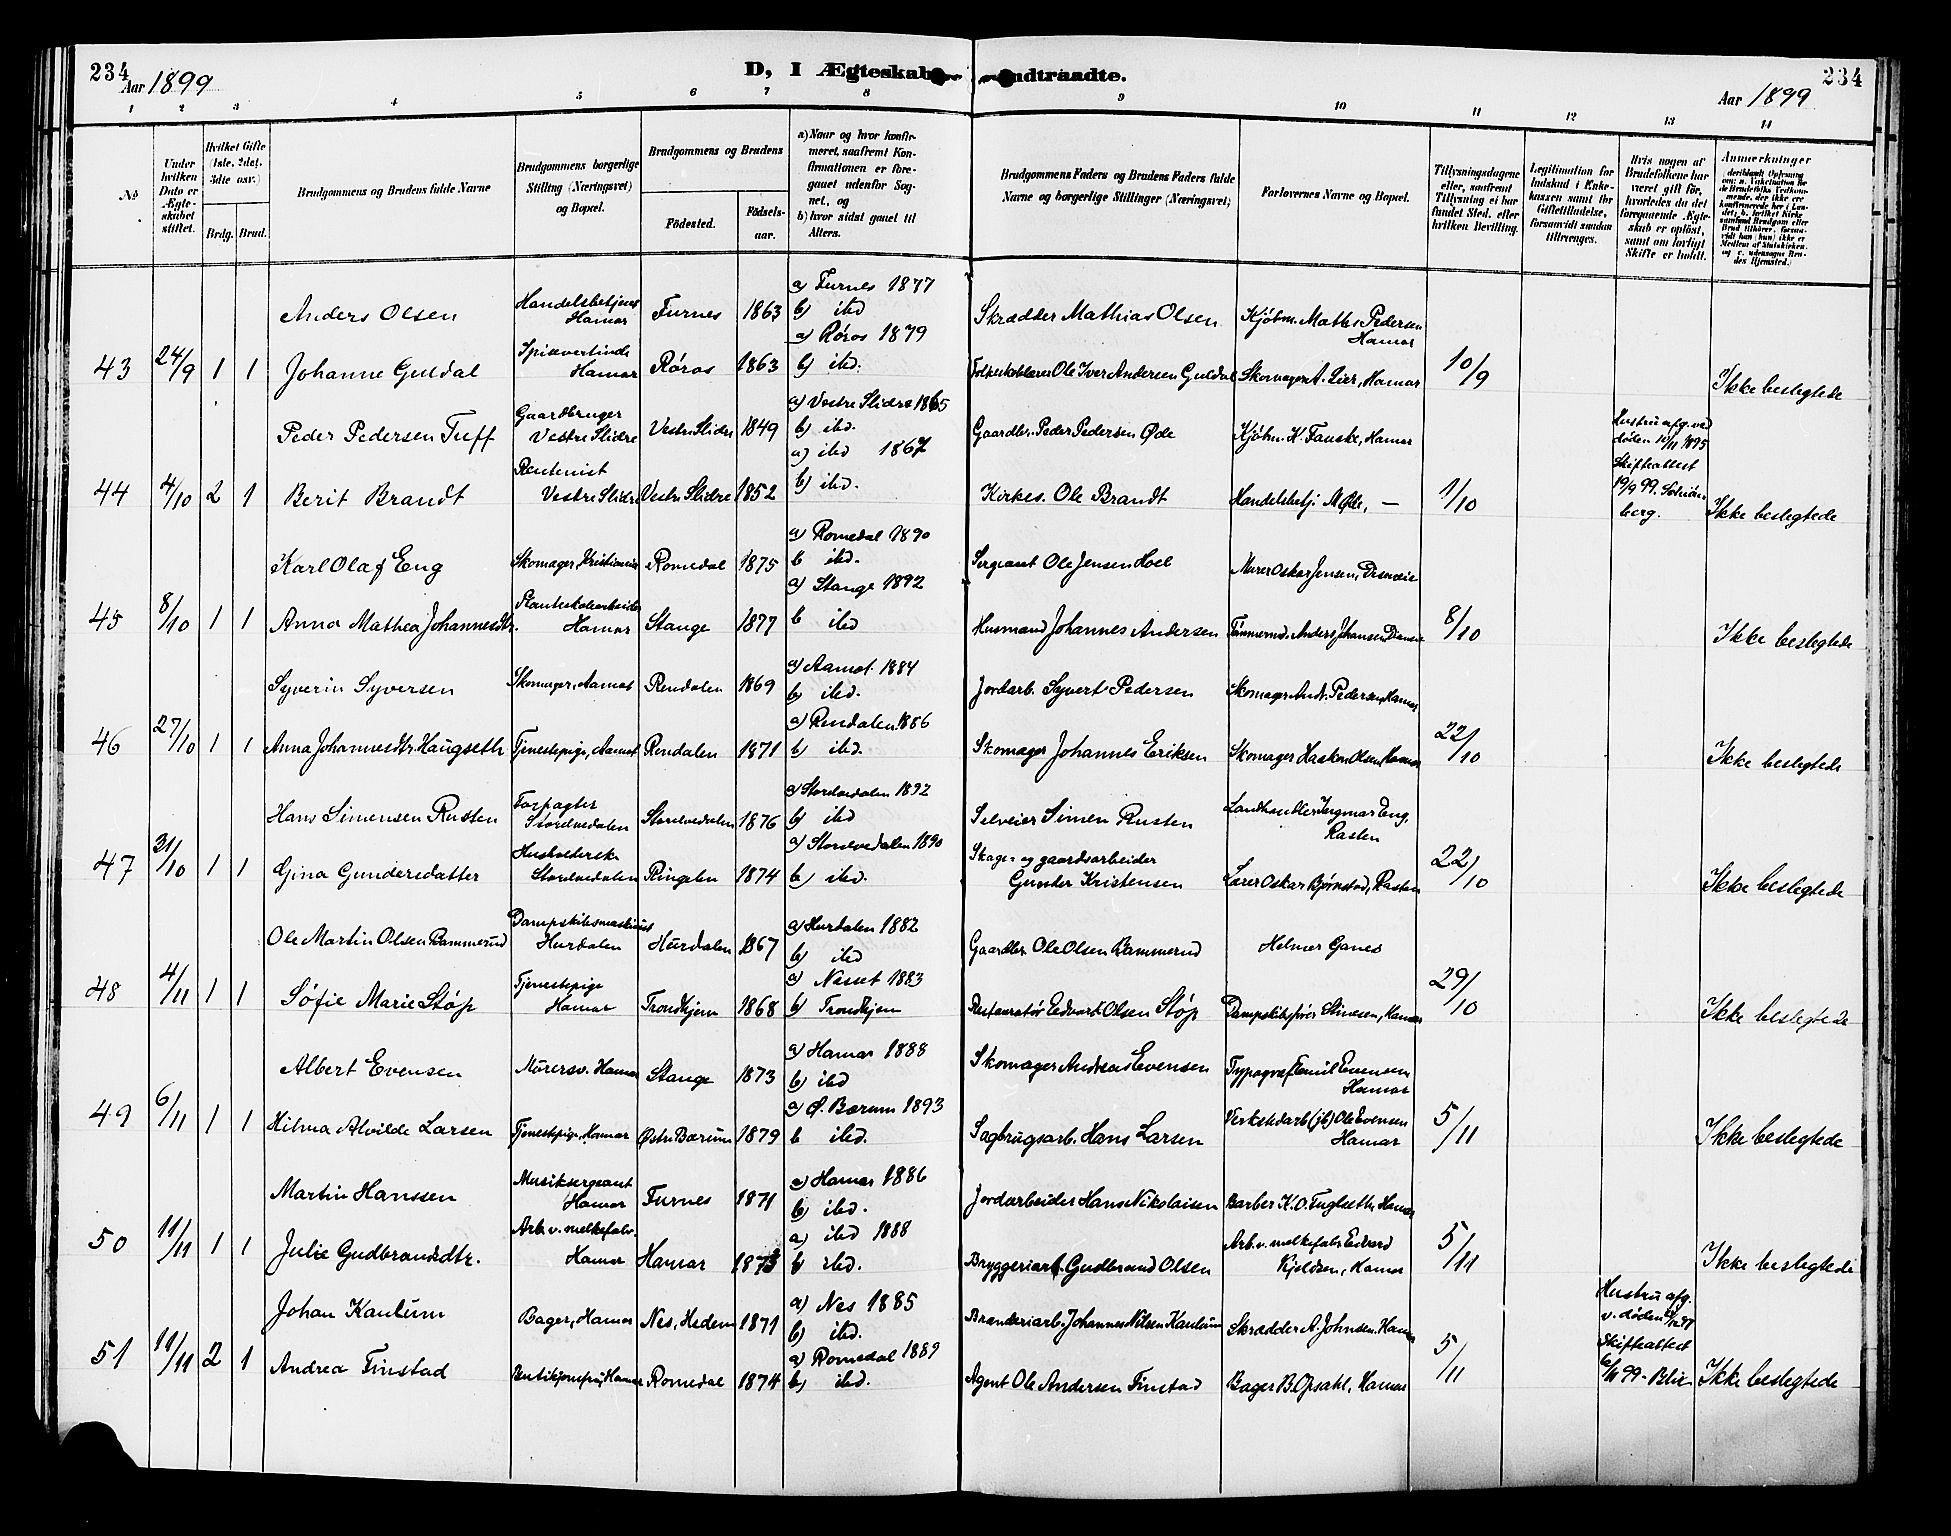 234
Aar 1899
D, I Ægteskab Indtraadte.
Aar 1899
234
1 2 3 4 5 6 7 8 9 10 11 12 13 14
No
Under hvilken Dato er Ægteskabet stiftet.
Hvilket Gifte (1ste, 2det, 3die osv.)
Brdg. Brud.
Brudgommens og Brudens fulde Navne
Brudgommens borgerlige Stilling (Næringsvei) og Bopæl.
Brudgommens og Brudens
Födested.
Födselsaar.
a) Naar og hvor konfirmeret, saafremt Konfirmationen er foregaaet udenfor Sognet, og
b) hvor sidst gaaet til Alters.
Brudgommens Faders og Brudens Faders fulde Navne og borgerlige Stillinger (Næringsvei)
Forlovernes Navne og Bopæl.
Tillysningsdagene eller, saafremt Tillysning ei har fundet Sted, efter hvilken Bevilling.
Legitimation for Indskud i Enkekassen samt for Giftetilladelse, forsaavidt saadan tiltrænges.
Hvis nogen af Brudefolkene har været gift för, hvorledes da det foregaaende Ægteskab er oplöst, samt om lovligt Skifte er holdt.
Anmerkninger
Anders Olsen Handelsbetjent Hamar Furnes 1863 a) Furnes 1877 b) ibd Skrædder Mathias Olsen Kjøbm. Mathis Pedersen Hamar
43 24/9 1 1 Johanne Guldal Spisevertinde Hamar Røros 1863 a) Røros 1879 b) ibd. Ole Iver Andersen Guldal Skomager A. Lier, Hamar 10/9 Ikke beslegtede
Peder Pedersen Tuff Gaardbruger Vestre Slidre Vestre Slidre 1849 a) Vestre Slidre 1865 b) ibd. Gaardbr. Peder Pedersen Øde Kjøbm. K. Fauske, Hamar Hustru afg. ved døden 10/11 1895
44 4/10 2 1 Berit Brandt Rentenist Vestre Slidre Vestre Slidre 1852 a) ibd 1867 b) ibd. Kirkes. Ole Brandt Handelsbetj. M. Øde, — 1/10 Skifteattest 19/9 99. Ikke beslegtede
Karl Olaf Eng Skomager, Kristiania Romedal 1875 a) Romedal 1890 b ibd. Sergeant Ole Jensen Hoel Murer Oskar Jensen, Disenseie
45 8/10 1 1 Anna Mathea Johannesdtr. Planteskolearbeider Hamar Stange 1877 a) Stange 1892 b ibd Husmand Johannes Andersen Tømmermd. Anders Johansen 8/10 Ikke beslegtede
Syverin Syversen Skomager, Aamot Rendalen 1869 a) Aamot 1884 b) ibd. Jordarb. Syvert Pedersen Skomager Andr. Pedersen, Hamar
46 27/10 1 1 Anna Johannesdtr. Haugseth Tjenestepige, Aamot Rendalen 1871 a) Rendalen 1886 b) ibd. Skomager Johannes Eriksen Skomager Haakon Olsen, Hamar 22/10 Ikke beslegtede
Hans Simensen Rusten Forpagter Storelvedalen Storelvedalen 1876 a) Storelvedalen 1892 b) ibd Selveier Simen Rusten Landhandler Ingmar Eng, Rasten
47 31/10 1 1 Gina Gundersdatter Husholderske Storelvedalen Ringelen 1874 a) Storelvedalen 1890 b) ibd. Skogs- og gaardsarbeider Gunder Kristensen Lærer Oskar Bjørnstad, Rasten 22/10 Ikke beslegtede
Ole Martin Olsen Bammerud Dampskibsmaskinist Hurdalen Hurdalen 1867 a) Hurdalen 1882 b) ibd Gaardbr. Ole Olsen Bammerud Helmer Ganes
48 4/11 1 1 Sofie Marie Støp Tjenestepige Hamar Trondhjem 1868 a) Næsset 1883 b) Trondhjem Restauratør Edvart Olsen Støp Dampskibsfører Stinesen, Hamar 29/10 Ikke beslegtede
Albert Evensen Murersv. Hamar Stange 1873 a) Hamar 1888 b) ibd Skomager Andreas Evensen Typograf Emil Evensen Hamar
49 6/11 1 1 Hilma Alvilde Larsen Tjenestepige, Hamar Østre Bærum 1879 a) Ø. Bærum 1893 b ibd. Sagbrugsarb. Hans Larsen Verkstedarb (jb) Ole Evensen Hamar 5/11 Ikke beslegtede
Martin Hanssen Musiksergeant Hamar Furnes 1871 a) Hamar 1886 b) ibd. Jordarbeider Hans Nikolaisen Barber K. O. Fuglseth, Hamar
50 11/11 1 1 Julie Gudbrandsdtr. Arb. v. melkefabr. Hamar Hamar 1873 a) ibd 1888 b ibd. Bryggeriarb. Gudbrand Olsen Arb. v. melkefabr. Edvard Kjeldsen, Hamar 5/11 Ikke beslegtede
Johan Kaulum Bager, Hamar Nes, Hedem 1871 a) Nes 1885 b) ibd. Brænderiarb. Johannes Nilsen Kaulum Skrædder A. Johnsen, Hamar Hustru afg. v. døden
51 11/11 2 1 Andrea Finstad Butikjomfru, Hamar Romedal 1874 a) Romedal 1889 b) ibd. Agent Ole Andersen Finstad Bager B. Opsahl, Hamar 5/11 Skifteattest 6/11 99 - Blix Ikke beslegtede